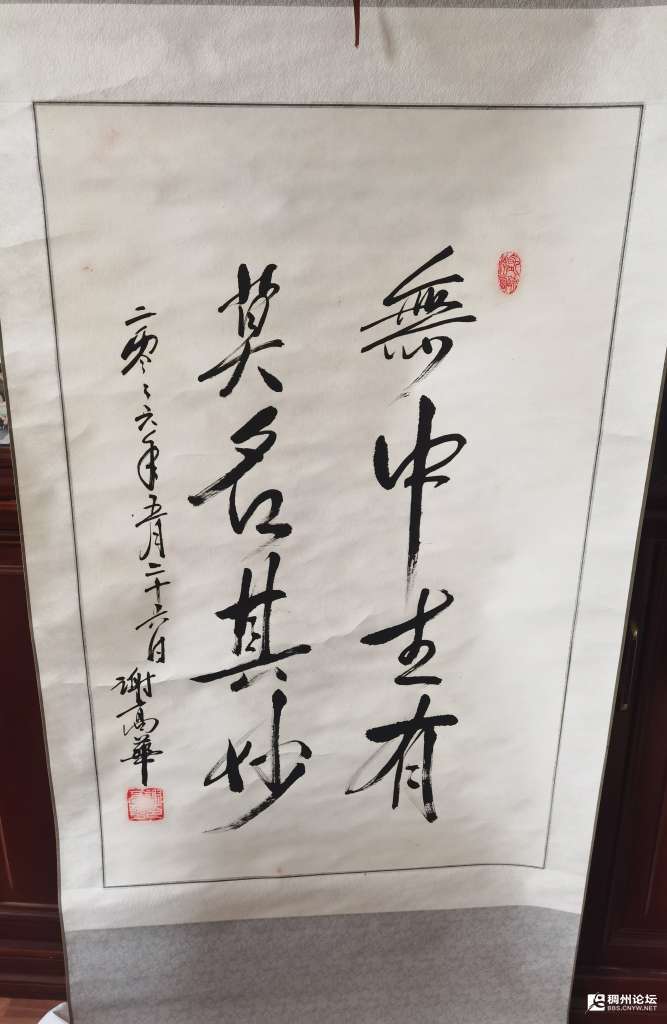 無中生有
莫名其妙
二零〻六年五月二十六日
谢高華
稠州论坛
BBS.CNYW.NET